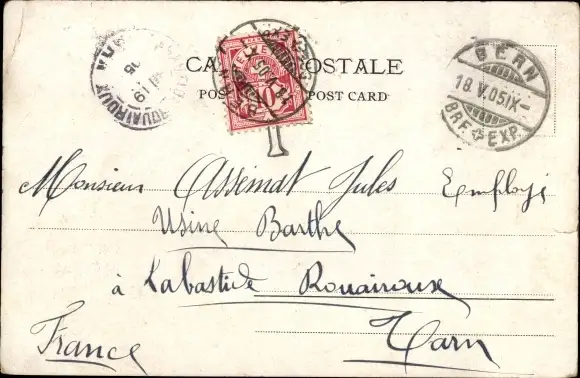 CA POSTALE
POS POST CARD
HELVETIA
10
BERN
18.V.05.IX-
BRF. EXP.
ROUAIROUX
19
05
Monsieur Assemat Jules Employé
Usine Barthe
à Labastide Rouairoux
Tarn
France